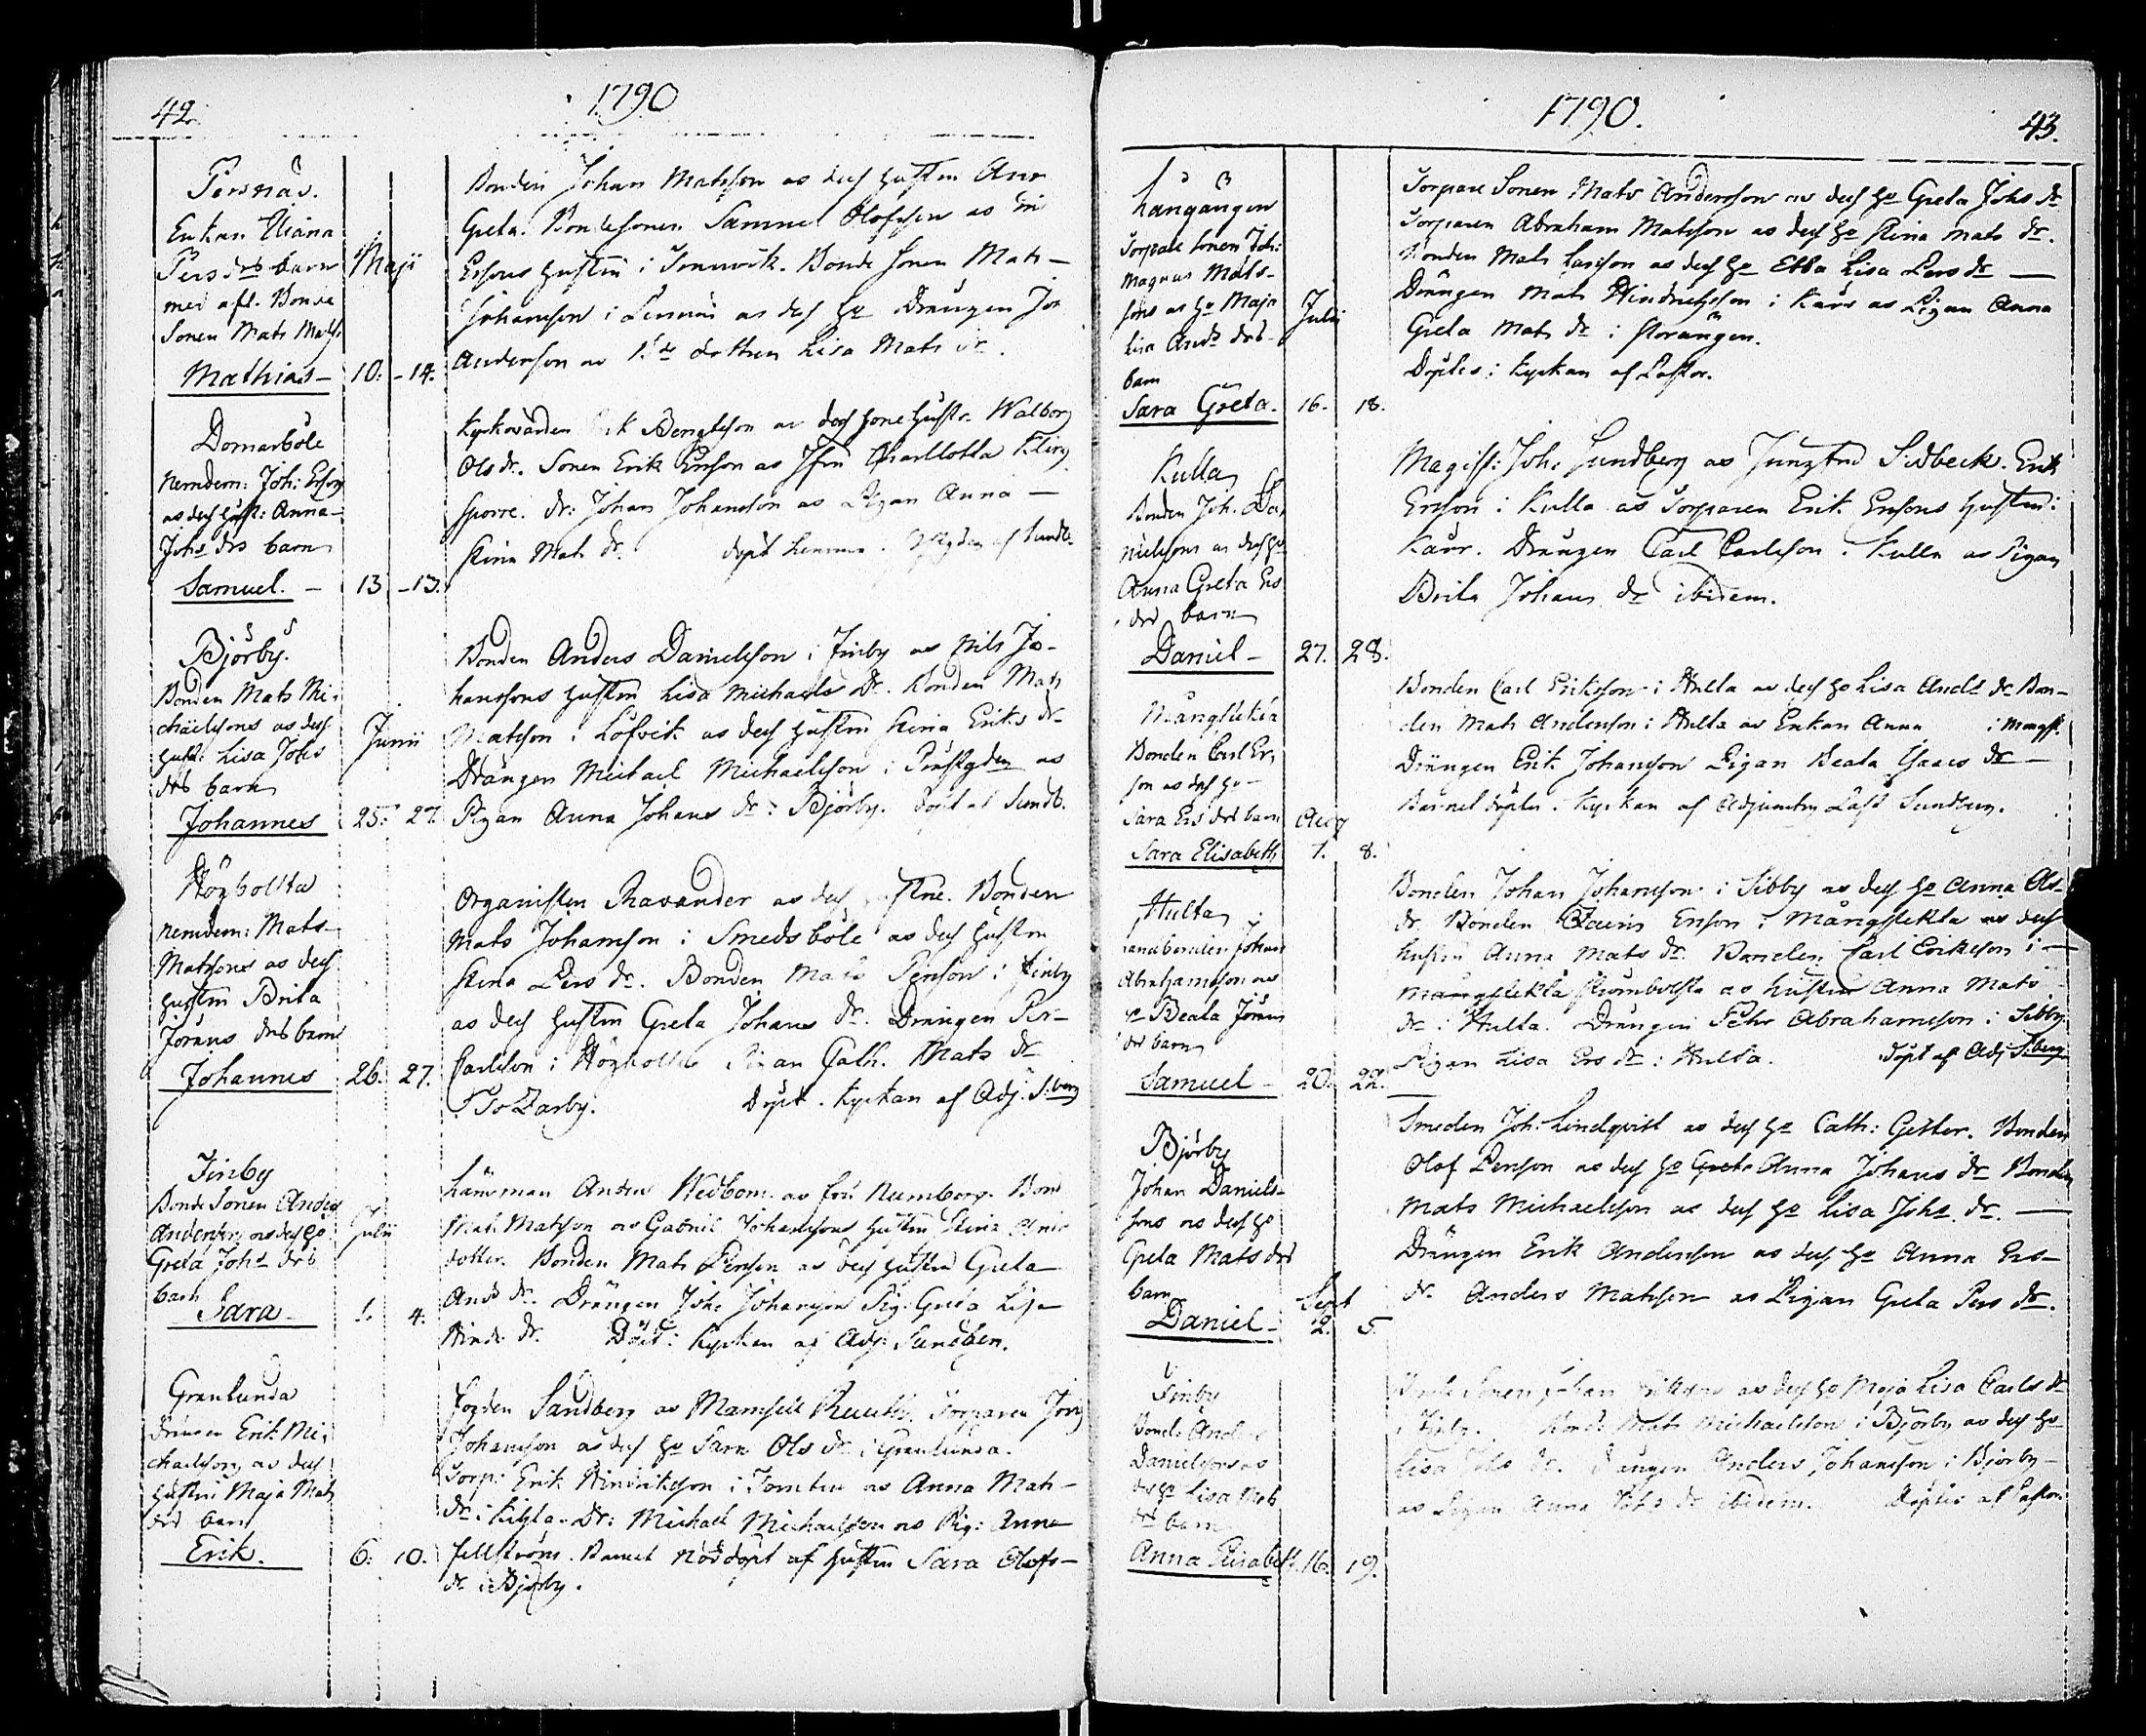 42.
1790
Persnäs.
Enkan Eliana
Pers drs barn
med afl. Bonde
Sonen Mats Mats
Mathias
Maji
10. - 14.
Bonden Johan Matsson as dess hustru Anna
Greta. Bondesonen Samuel Olofsson as
Ersons hustru i Tenuvik. Bonde sonen Mats
Johansson i as dess ho Drängen Joh
Andersson as dottren Lisa Mats dr.
Domarböle
Nemdem: Joh: Ersons
as dess hust: Anna
Johs drs barn
Samuel.
13 - 13.
Kyrkovärden Erik Bengtsson as dess hustr. Walborg
Ols dr. Sonen Erik Ersson as Jfru Charllotta Kling
sporre. dr: Johan Johansson as Pigan Anna
Stina Mats dr. döpt hemma af Sundb.
Björby.
Bonden Mats Mi-
chaelsons as dess
hust: Lisa Johs
drs barn
Johannes
Junii
25. 27.
Bonden Anders Danielsson i Finby as Nils Jo-
hanssons hustru Lisa Michaels dr. Bonden Mats
Matsson i Löfvik as dess hustru Stina Eriks dr
Drängen Mickael Michaelsson i Prästgden as
Pigan Anna Johans dr i Björby. döpt af Sundb.
Högbolsta
Nemdem: Mats
Matsons as dess
hustru Brita
Jörans drs barn
Johannes
26. 27.
Organisten Ravander as dess hustru. Bonden
Mats Johansson i Smedsböle as dess hustru
Stina Pers dr. Bonden Mats Person i Finby
as dess hustru Greta Johans dr. Drängen Per
Carlsson i Högbolsta Pigan Cath. Mats dr
Döpt i Kyrkan af Adj. S:berg
Finby
Bonde Sonen Anders
Anderson as dess ho
Greta Johs drs
barn
Sara
Julii
1. 4.
Länsman Anders Wedbom as fru Rumberg. Bond
Mats Matsson as Gabriel Johanssons hustru Stina
dotter. Bonden Mats Person as dess hustru Greta
Ands dr. Drängen Johs Johansson Pig: Greta Lisa
Hinds dr. Döpt i Kyrkan af Adj: Sundberg.
Granlunda
Drängen Erik Mi-
chaelson as dess
hustru Maja Mats
drs barn
Erik.
6. 10.
Fogden Sandberg as Mamsell Reuth. Torparen
Johansson as dess ho Sara Ols dr. i Granlunda.
Torp: Erik Hindriksson i Tomten as Anna Mats
dr i Kihla. Dr: Michael Michaelsson as Pig: Anna
Fellström. Barnet nöddöpt af hustru Sara Olofs
dr i Björby.
1790.
43.
Långängen
Torpare sonen Joh:
Magnus Mats-
sons as ho Maja
Lisa Ands drs
barn
Sara Greta.
Julii
16. 18.
Torpare Sonen Mats Andersson as dess ho Greta Johs dr
Torparen Abraham Matsson as dess ho Stina Mats dr.
Bonden Mats Larsson as dess ho Ebba Lisa Pers dr
Drängen Mats Hindrichsson i Karr as Pigan Anna
Greta Mats dr i Storängen.
Döptes i Kyrkan af Pastor.
Kulla
Bonden Joh. Da-
nielsons as dess ho
Anna Greta Ers
drs barn
Daniel
27. 28.
Magist: Johs Sundberg as Jungfru Sidbeck. Erik
Erson i Kulla as Torparen Erik Ersons hustru i
Karr. Drängen Carl Carlsson i Kulla as Pigan
Brita Johans dr ibidem.
Mångstekta
Bonden Carl Er-
son as dess ho
Sara Ers drs barn
Sara Elisabeth
Aug
1. 8.
Bonden Carl Eriksson i Hulta as dess ho Lisa Ands dr Bon-
den Mats Andersson i Hulta as Enkan Anna i Mångst.
Drängen Erik Johansson Pigan Beata Isacs dr
Barnet döptes i Kyrkan af Adjuncten Sundberg.
Hulta
Landbonden Johan
Abrahamsson as
ho Beata Jörans
drs barn
Samuel
20. 22.
Bonden Johan Johansson i Sibby as dess ho Anna Ols
dr. Bonden Erson i Mångstekta as dess
hustru Anna Mats dr. Bonden Carl Eriksson i
Mångstekta Strömbolsta as hustru Anna Mats
dr i Hulta. Drängen Pehr Abrahamsson i Sibby
Pigan Lisa Ers dr i Hulta. döpt af Adj S:berg
Björby
Johan Daniels-
sons as dess ho
Greta Mats drs
barn
Daniel
Sept
2. 5.
Smeden Joh: Lindqvist as dess ho Cath: Getter. Bonden
Olof Person as dess ho Greta Anna Johans dr Bonden
Mats Michaelsson as dess ho Lisa Johs dr.
Drängen Erik Andersson as dess ho Anna Ers
dr. Anders Matsson as Pigan Greta Pers dr.
Finby
Bonde Anders
Danielsons as
dess ho Lisa Mats
drs barn
Anna Elisabeth
16. 19.
Bonde Sonen Johan as dess ho Maja Lisa Carls dr
i Finby. Bond: Mats Michaelsson i Björby as dess ho
Lisa Johs dr. Drängen Anders Johansson i Björby
as Pigan Anna Johs dr ibidem. döptes af Pastor.